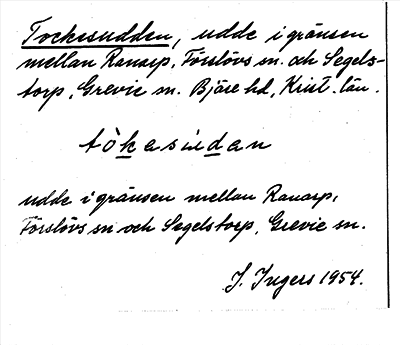 Tockesudden, udde i gränsen
mellan Ranarp, Förslövs sn. och Segels-
torp, Grevie sn. Bjäre hd, Krist. län.
tòkesudan
udde i gränsen mellan Ranarp,
Förslövs sn och Segelstorp, Grevie sn.
J. Ingers 1954.